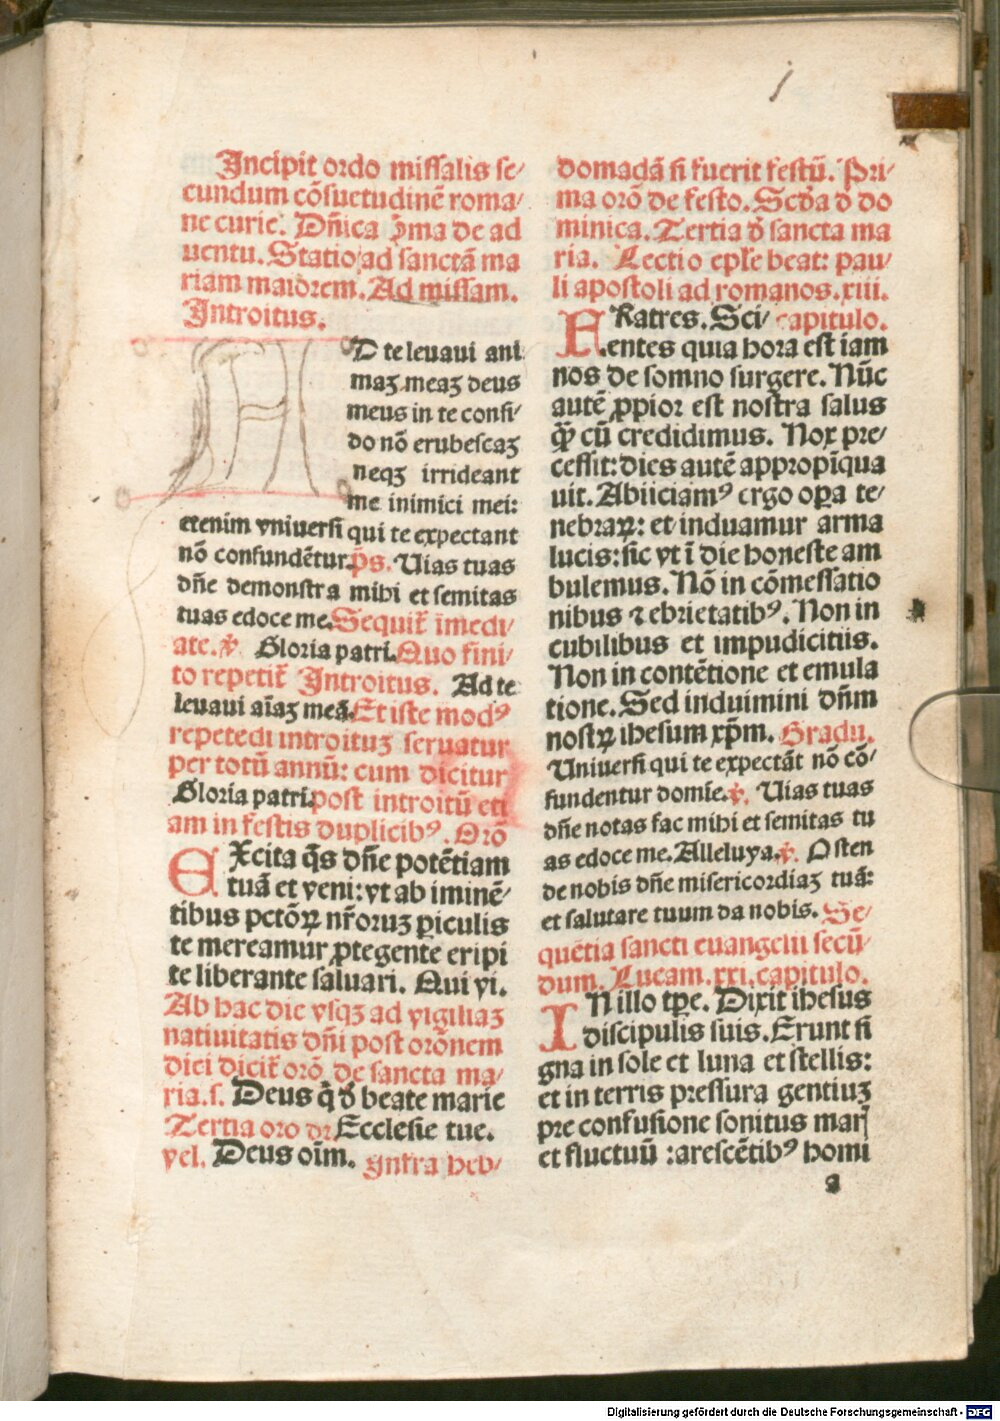 j
Incipit ordo missalis se/
cundum cōsuetudinē roma/
ne curie. Dñica p̄ma de ad
uentu. Statio ad sanctā ma
riam maiorem. Ad missam.
Introitus.
AD te leuaui ani
maꝫ meaꝫ deus
meus in te confi/
do nō erubescaꝫ
neqꝫ irrideant
me inimici mei:
etenim vniuersi qui te expectant
nō confundētur. p̄s. Uias tuas
dñe demonstra mihi et semitas
tuas edoce me. Sequit̄ īmedi/
ate. ℣. Gloria patri. Quo fini/
to repetit̄ Introitus. Ad te
leuaui aīaꝫ meā. Et iste modꝰ
repetēdi introituꝫ seruatur
per totū annū: cum dicitur
Gloria patri. post introitū eti
am in festis duplicibꝰ. Orō
EXcita q̄s dñe potētiam
tuā et veni: vt ab iminē/
tibus pctōꝝ nr̄oruꝫ ꝑiculis
te mereamur ꝓtegente eripi
te liberante saluari. Qui vi.
Ab hac die vsqꝫ ad vigiliaꝫ
natiuitatis dñi post orōnem
diei dicit̄ orō de sancta ma/
ria. s. Deus q̄ đ beate marie
Tertia oro dr̄ Ecclesie tue.
vel. Deus oīm. Infra heb/
domadā si fuerit festū. Pri/
ma orō de festo. Scđa đ do
minica. Tertia đ sancta ma
ria. Lectio ep̄le beat: pau/
li apostoli ad romanos. xiii.
FRatres. Sci/ capitulo.
entes quia hora est iam
nos de somno surgere. Nūc
autē ꝓpior est nostra salus
q̄ȝ cū credidimus. Nox pre/
cessit: dies autē appropīqua
uit. Abiiciamꝰ ergo oꝑa te/
nebraꝝ: et induamur arma
lucis: sic vt ī die honeste am
bulemus. Nō in cōmessatio
nibus ⁊ ebrietatibꝰ. Non in
cubilibus et impudicitiis.
Non in contētione et emula
tione. Sed induimini dñm
nostꝝ ihesum xp̄m. Gradu.
Uniuersi qui te expectāt nō cō/
fundentur domīe. ℣. Uias tuas
dñe notas fac mihi et semitas tu
as edoce me. Alleluya. ℣. Osten
de nobis dñe misericordiaꝫ tuā:
et salutare tuum da nobis. Se/
quētia sancti euangelii secū/
dum. Lucam. xxi. capitulo.
IN illo tp̄e. Dixit ihesus
discipulis suis. Erunt si
gna in sole et luna et stellis:
et in terris pressura gentiuꝫ
pre confusione sonitus marꝭ
et fluctuū : arescētibꝰ homi
a
Digitalisierung gefördert durch die Deutsche Forschungsgemeinschaft - DFG